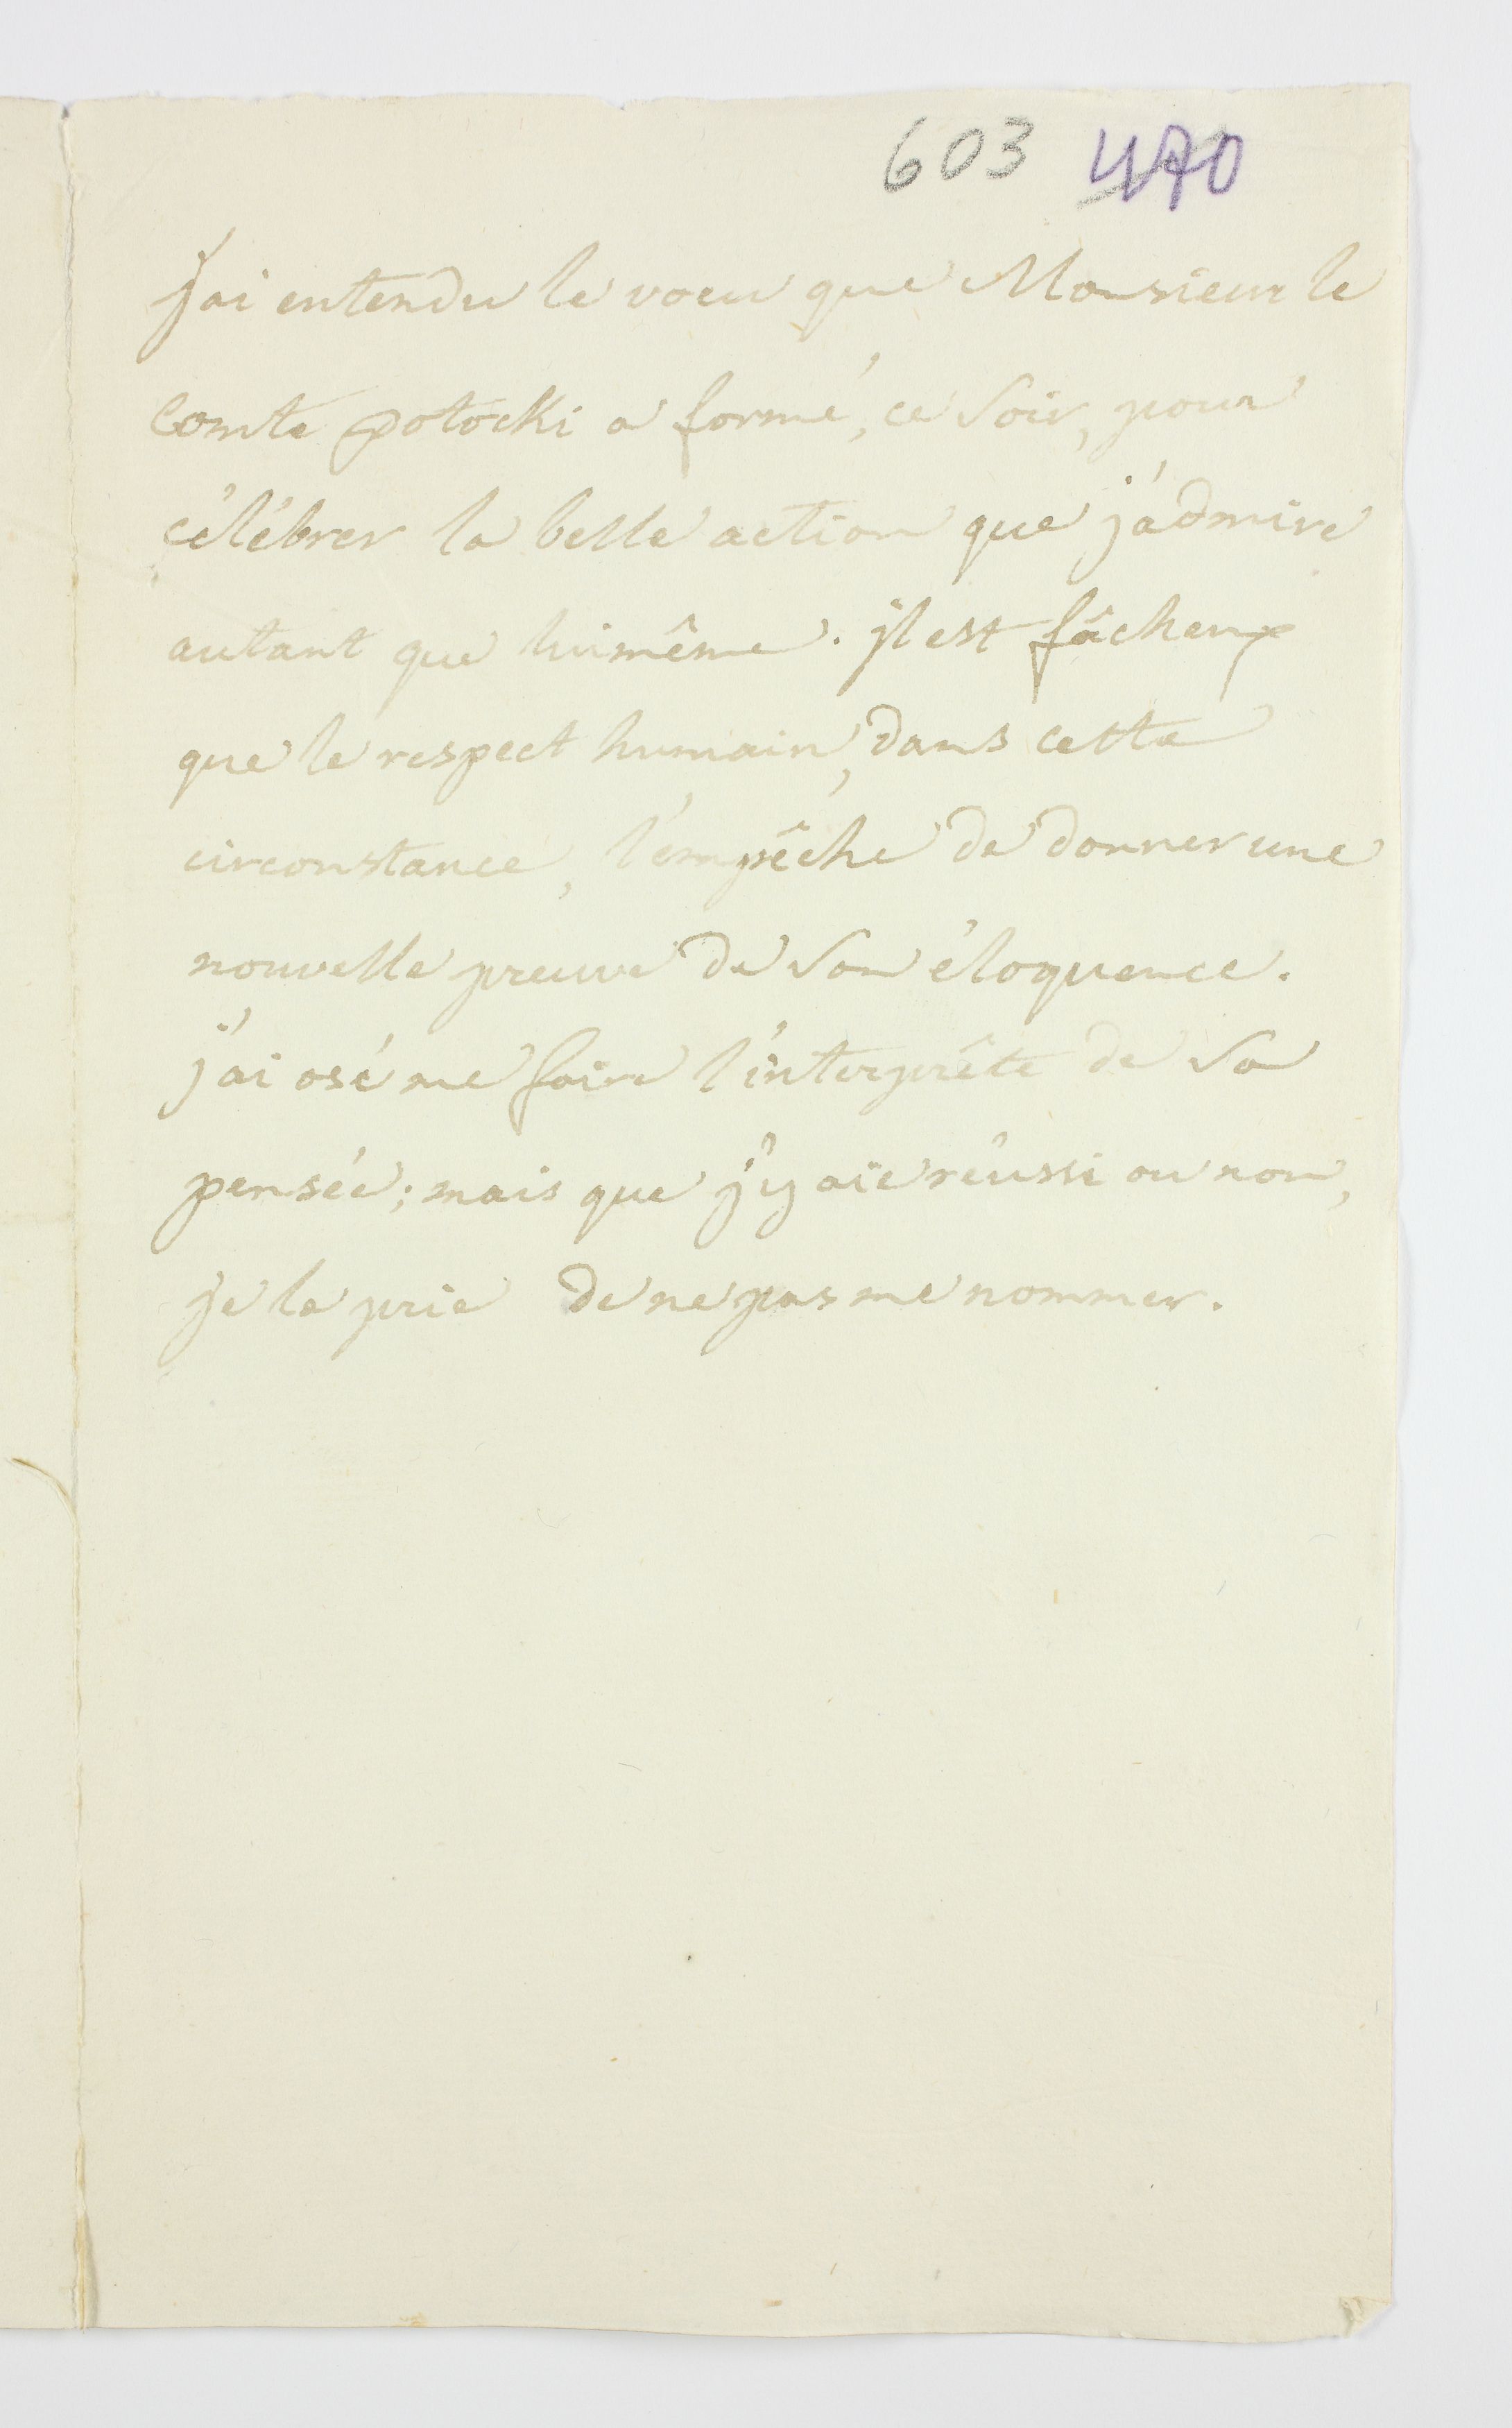 603 470
J'ai entendu le voeu que Monsieur le
Comte potocki a formé, ce soir, pour
célébrer la belle action que j'admire
autant que luimême. jl est fâcheux
que le respect humain, dans cette
circonstance, l'empêche de donner une
nouvelle preuve de son éloquence.
j'ai osé me faire l'interprête de sa
pensée; mais que j'y aïe réussi ou non,
je le prie de ne pas me nommer.